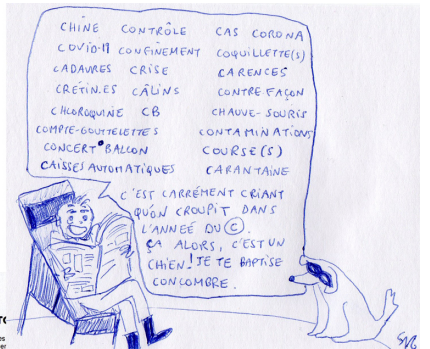 CHINE CONTRÔLE CAS CORONA
COVID-19 CONFINEMENT COQUILLETTE(S)
CADAVRES CRISE CARENCES
CRÉTIN.ES CÂLINS CONTREFAÇON
CHLOROQUINE CB CHAUVE-SOURIS
COMPTE-GOUTTELETTES CONTAMINATIONS
CONCERT BALCON COURSE(S)
CAISSES AUTOMATIQUES CARANTAINE
C'EST CARRÉMENT CRIANT
QU'ON CROUPIT DANS
L'ANNEÉ DU ©.
ÇA ALORS, C'EST UN
CHIEN! JE TE BAPTISE
CONCOMBRE.